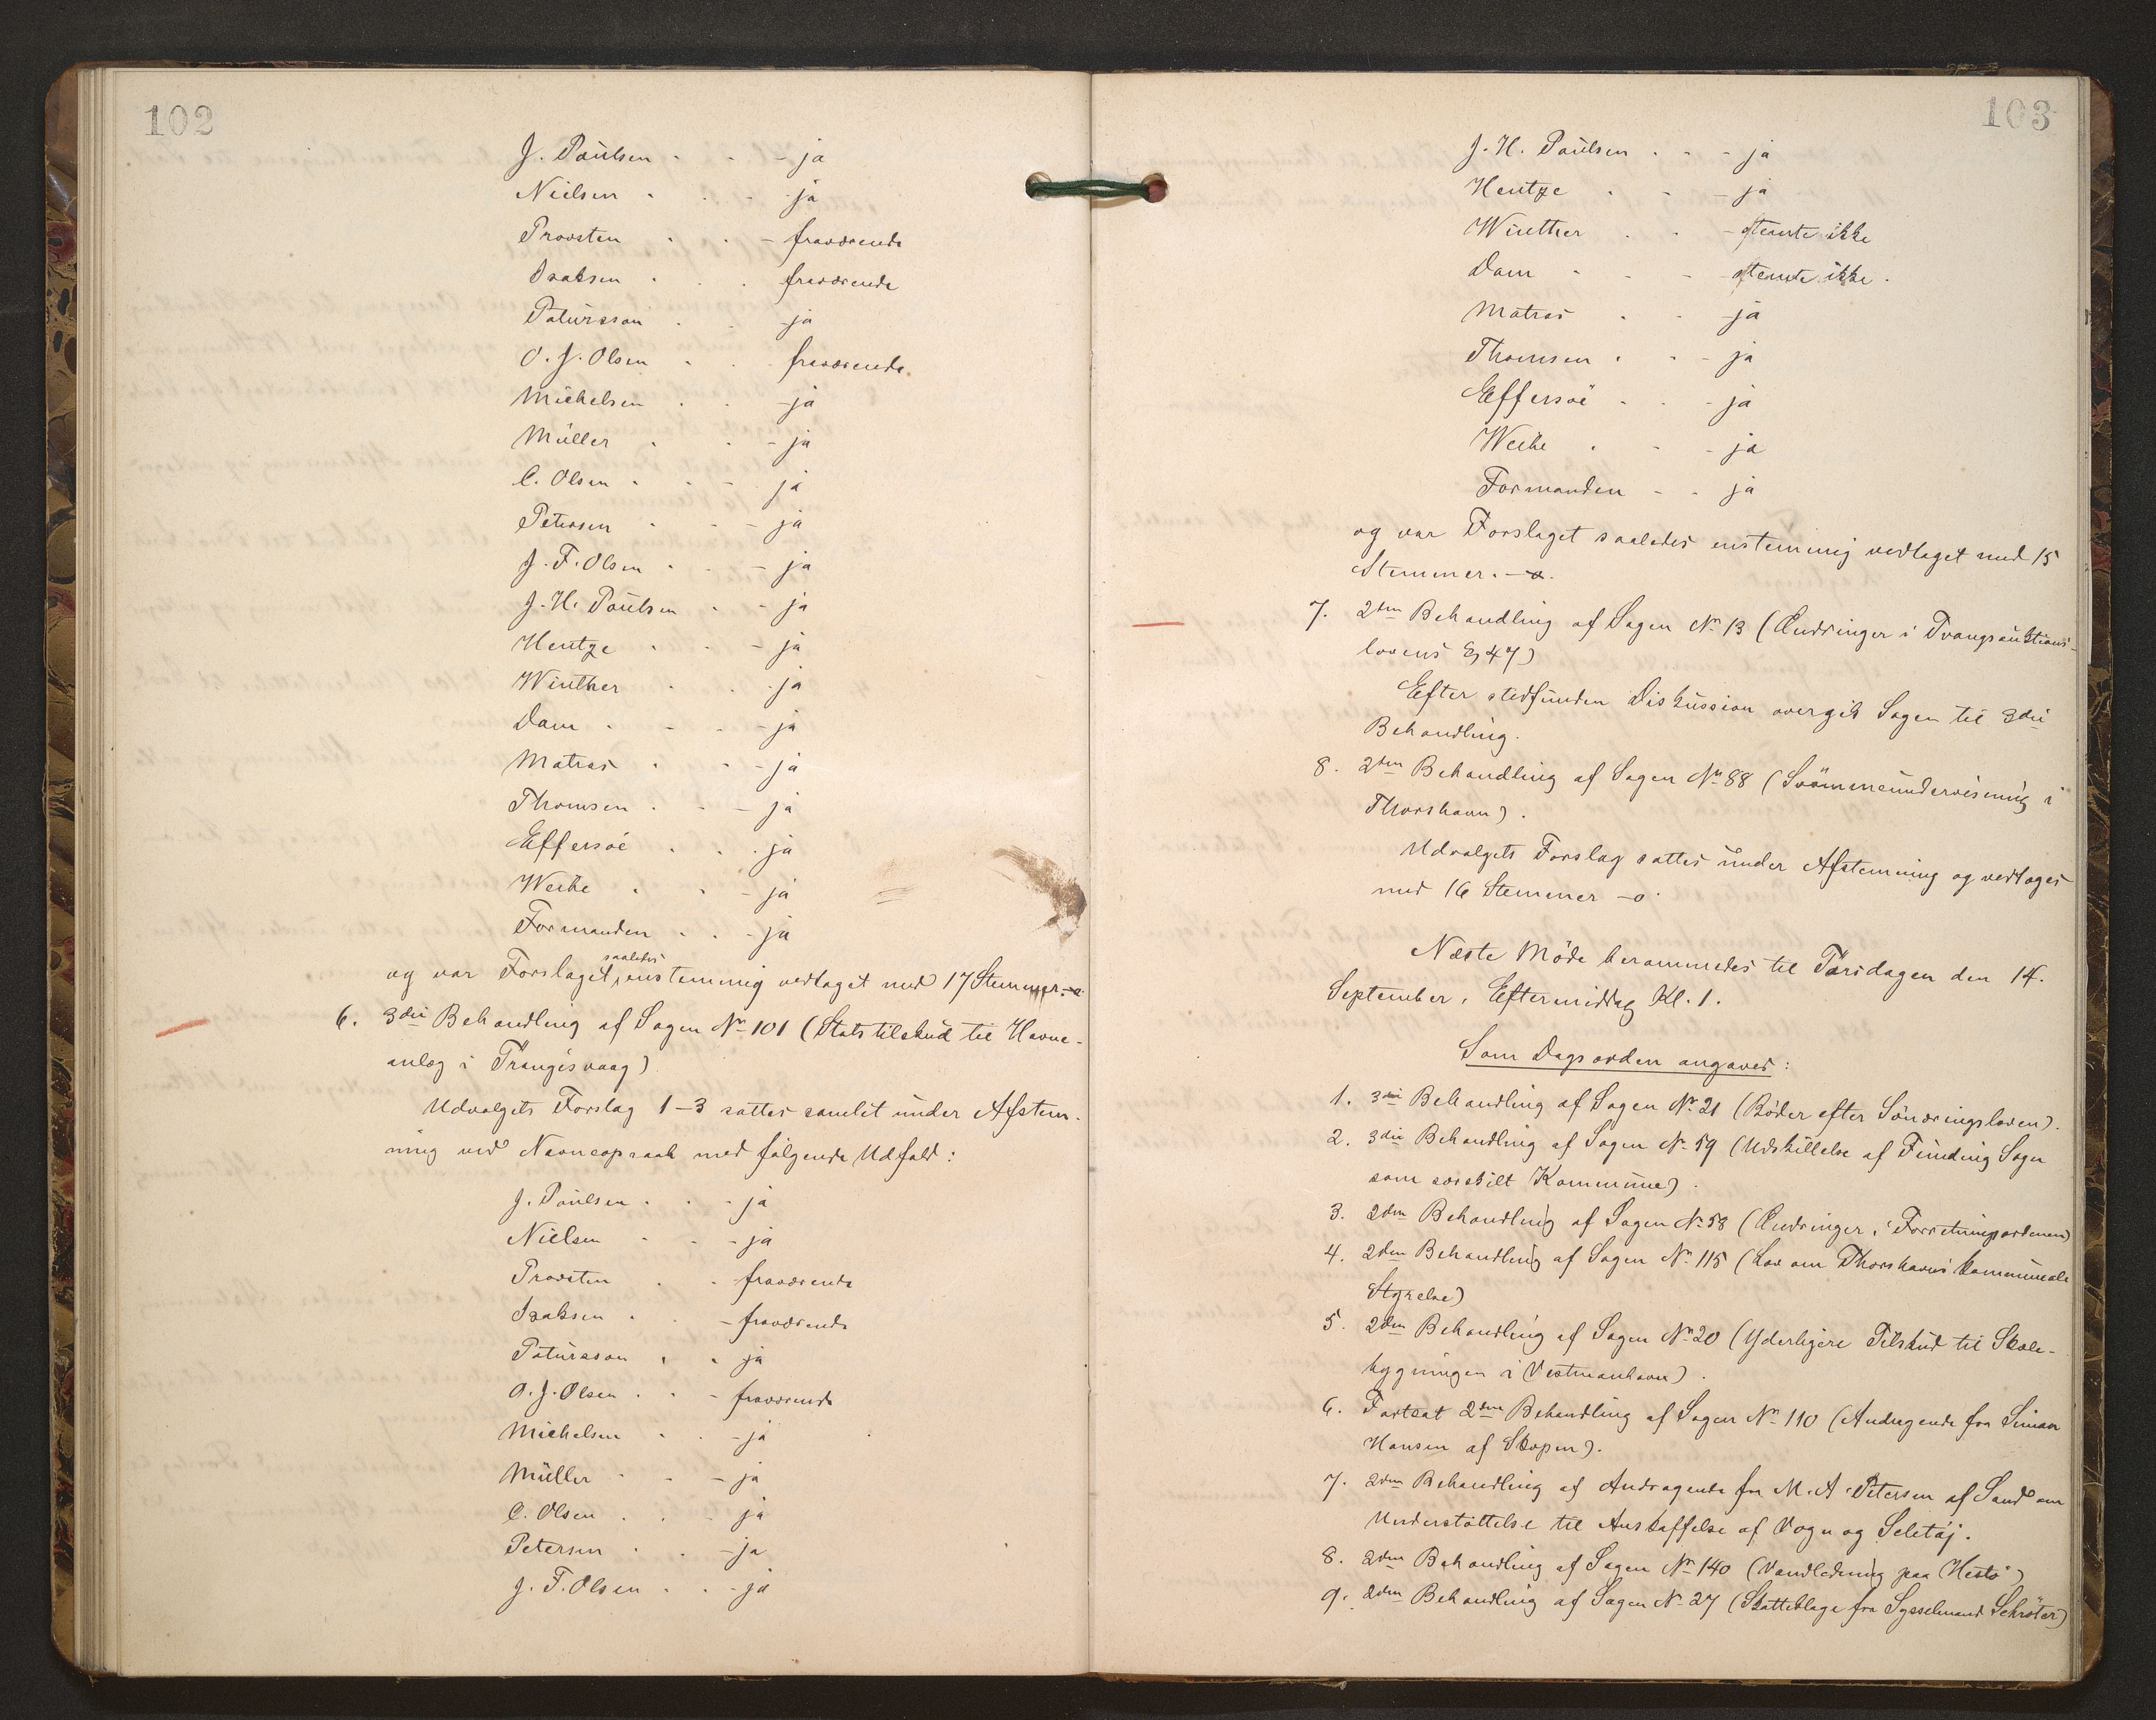 102
J. Paulsen - - - ja
Nielsen - - - ja
Provsten - - - fraværende
Isaksen - - fraværende
Patursson - - ja
O. J. Olsen - - fraværende
Michelsen - - ja
Müller - - - ja
C. Olsen - - - ja
Petersen - - - ja
J. F. Olsen - - - ja
J. H. Paulsen - - ja
Hentze - - - ja
Winther - - - ja
Dam - - - - ja
Matras - - - ja
Thomsen - - - ja
Effersøe - - - ja
Weihe - - - ja
Formanden - - - ja
og var Forslaget saaledes enstemmig vedtaget med 17 Stemmer. -o-
6. 3die Behandling af Sagen No 101 (Statstilskud til Havne-
anlæg i Trangisvaag)
Udvalgets Forslag 1-3 sattes samlet under Afstem-
ning ved Navneopraab med følgende Udfald:
J. Paulsen - - - ja
Nielsen - - - ja
Provsten - - fraværende
Isaksen - - - fraværende
Patursson - - ja
O. J. Olsen - - - fraværende
Michelsen - - - ja
Müller - - - ja
C. Olsen - - - ja
Petersen - - - ja
J. F. Olsen - - - ja
103
J. H. Paulsen - - - ja
Hentze - - - ja
Winther - - - stemte ikke
Dam - - - stemte ikke.
Matras - - - ja
Thomsen - - - ja
Effersøe - - - ja
Weihe - - - ja
Formanden - - ja
og var Forslaget saaledes enstemmig vedtaget med 15
Stemmer. -o-
7. 2den Behandling af Sagen No 13 (Ændringer i Tvangsauktions-
lovens § 47)
Efter stedfunden Diskussion overgik Sagen til 3die
Behandling.
8. 2den Behandling af Sagen No 88 (Svømmeundervisning i
Thorshavn).
Udvalgets Forslag sattes under Afstemning og vedtoges
med 16 Stemmer -o-
Næste Møde berammedes til Torsdagen den 14.
September, Eftermiddag Kl. 1.
Som Dagsorden angaves:
1. 3die Behandling af Sagen No 21 (Bøder efter Søndringsloven).
2. 3die Behandling af Sagen No 59 (Udskillelse af Funding Sogn
som særskilt Kommune).
3. 2den Behandling af Sagen No 58 (Ændringer i Forretningsordenen)
4. 2den Behandling af Sagen No 115 (Lov om Thorshavns kommunale
Styrelse)
5. 2den Behandling af Sagen No 20 (Yderligere Tilskud til Skole-
bygningen i Vestmanhavn).
6. Fortsat 2den Behandling af Sagen No 110 (Andragende fra Simon
Hansen af Skopen).
7. 2den Behandling af Andragende fra M. A. Petersen af Sand om
Understøttelse til Anskaffelse af Vogn og Seletøj.
8. 2den Behandling af Sagen No 140 (Vandledning paa Hestø)
9. 2den Behandling af Sagen No 27 (Skatteklage fra Sysselmand Schrøter)